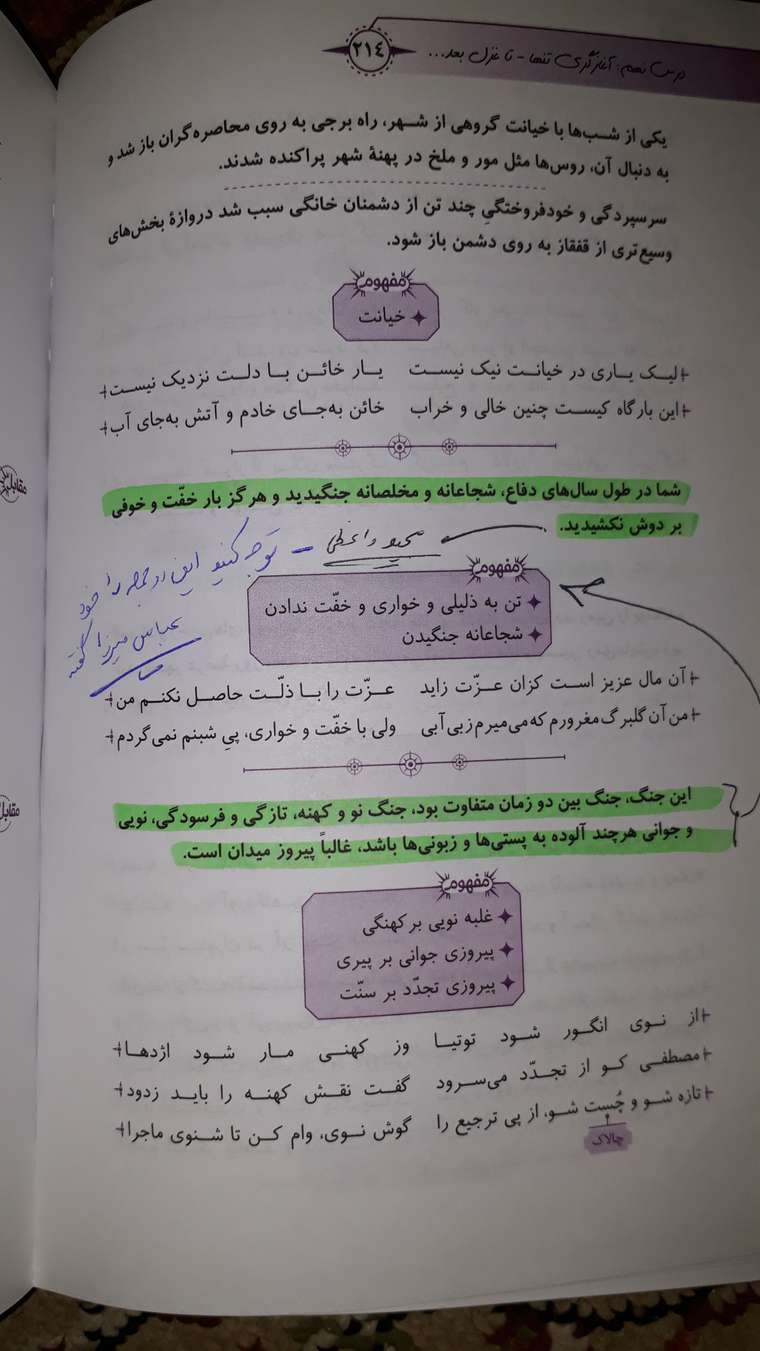 ۲۱۴
درس نهم: آغازگری تنها - تا غزل بعد...
یکی از شب‌ها با خیانت گروهی از شهر، راه برجی به روی محاصره‌گران باز شد و
به دنبال آن، روس‌ها مثل مور و ملخ در پهنهٔ شهر پراکنده شدند.
سرسپردگی و خودفروختگیِ چند تن از دشمنان خانگی سبب شد دروازهٔ بخش‌های
وسیع‌تری از قفقاز به روی دشمن باز شود.
مفهوم
خیانت
لیک یاری در خیانت نیک نیست یار خائن با دلت نزدیک نیست
این بارگاه کیست چنین خالی و خراب خائن به‌جای خادم و آتش به‌جای آب
شما در طول سال‌های دفاع، شجاعانه و مخلصانه جنگیدید و هرگز بار خفّت و خوفی
بر دوش نکشیدید.
توجه کنید این دو جمله را خود
عباس میرزا گفته
مفهوم
تن به ذلیلی و خواری و خفّت ندادن
شجاعانه جنگیدن
آن مال عزیز است کزان عزّت زاید عزّت را با ذلّت حاصل نکنم من
من آن گلبرگ مغرورم که می‌میرم ز بی‌آبی ولی با خفّت و خواری، پیِ شبنم نمی‌گردم
مقابل
این جنگ، جنگ بین دو زمان متفاوت بود، جنگ نو و کهنه، تازگی و فرسودگی، نویی
و جوانی هرچند آلوده به پستی‌ها و زبونی‌ها باشد، غالباً پیروز میدان است.
مقابل
مفهوم
غلبه نویی بر کهنگی
پیروزی جوانی بر پیری
پیروزی تجدّد بر سنّت
از نوی انگور شود توتیا وز کهنی مار شود اژدها
مصطفی کو از تجدّد می‌سرود گفت نقش کهنه را باید زدود
تازه شو و چُست شو، از پی ترجیع را گوش نوی، وام کن تا شنوی ماجرا
چالاک